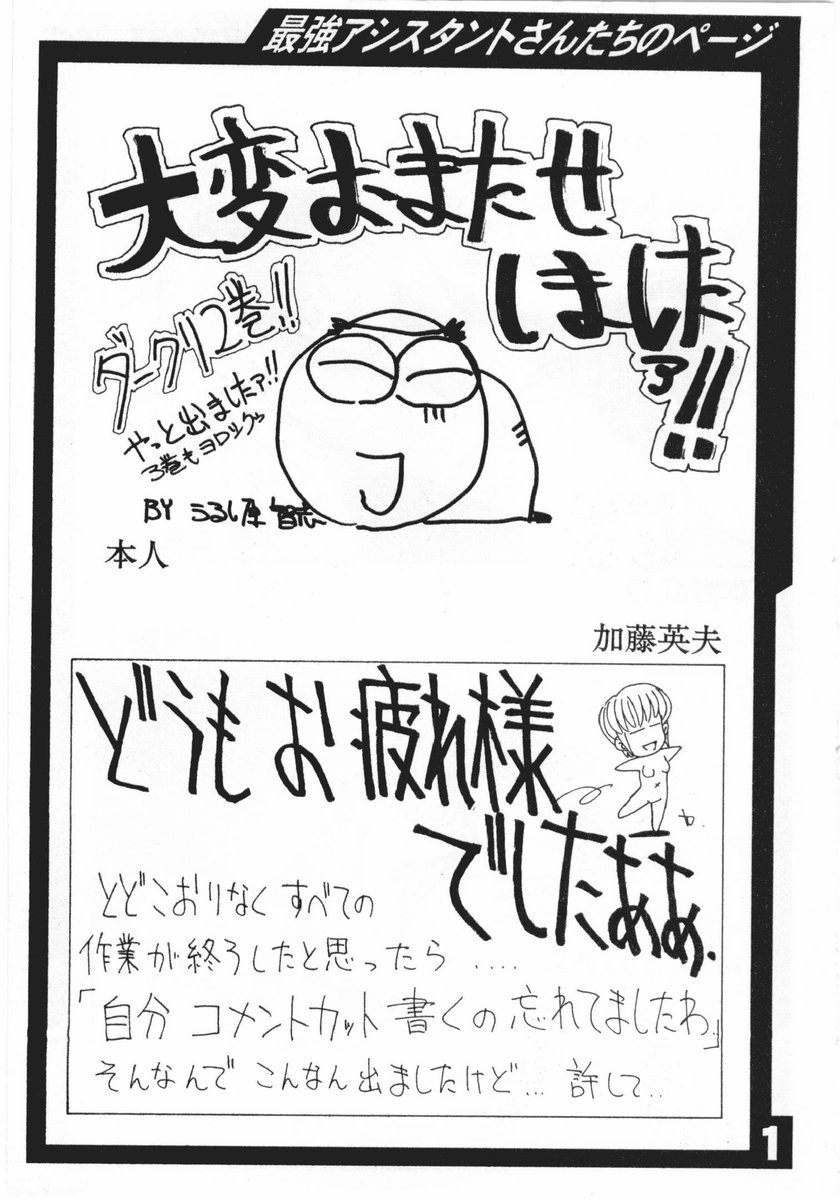 最強アシスタントさんたちのページ
大変おまたせ
しましたァ!!
ダークリ2巻!!
やっと出ましたァ!!
3巻もヨロシクゥ
BY うるし原 智志
本人
加藤英夫
どうもお疲れ様
でしたああ.
とどこおりなくすべての
作業が終ろしたと思ったら ....
「自分 コメントカット 書くの 忘れてましたわ」
そんなんで こんなん出ましたけど... 許して..
1